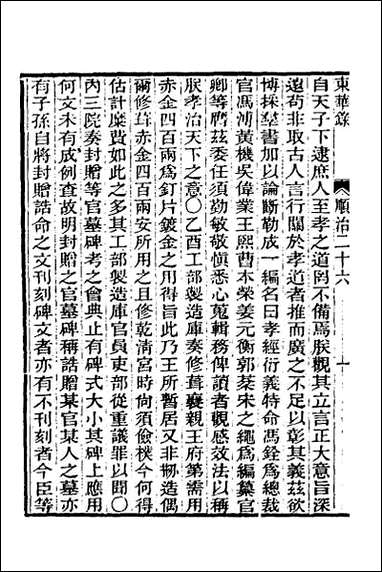 東華錄　順治二十六　一
自天子下逮庶人至孝之道罔不備焉朕觀其立言正大意旨深
遠苟非取古人言行關於孝道者推而廣之不足以彰其義茲欲
博採羣書加以論斷勒成一編名曰孝經衍義特命馮銓為總裁
官馮溥黃機吳偉業王熙曹本榮姜元衡郭棻宋之繩為編纂官
卿等膺茲委任須勤敏敬慎悉心蒐輯務俾讀者觀感效法以稱
朕孝治天下之意○乙酉工部製造庫奏修葺襄親王府第需用
赤金四百兩為釘片鍍金之用得旨此乃王所暫居又非剏造偶
爾修葺赤金四百兩安所用之且修乾清宮時尙須儉樸今何得
估計糜費如此之多其工部製造庫官員吏部從重議罪以聞○
內三院奏封贈等官墓碑考之會典止有碑式大小其碑上應用
何文未有成例查故明封贈之官墓碑稱誥贈某官某人之墓亦
有子孫自將封贈誥命之文刊刻碑文者亦有不刊刻者今臣等